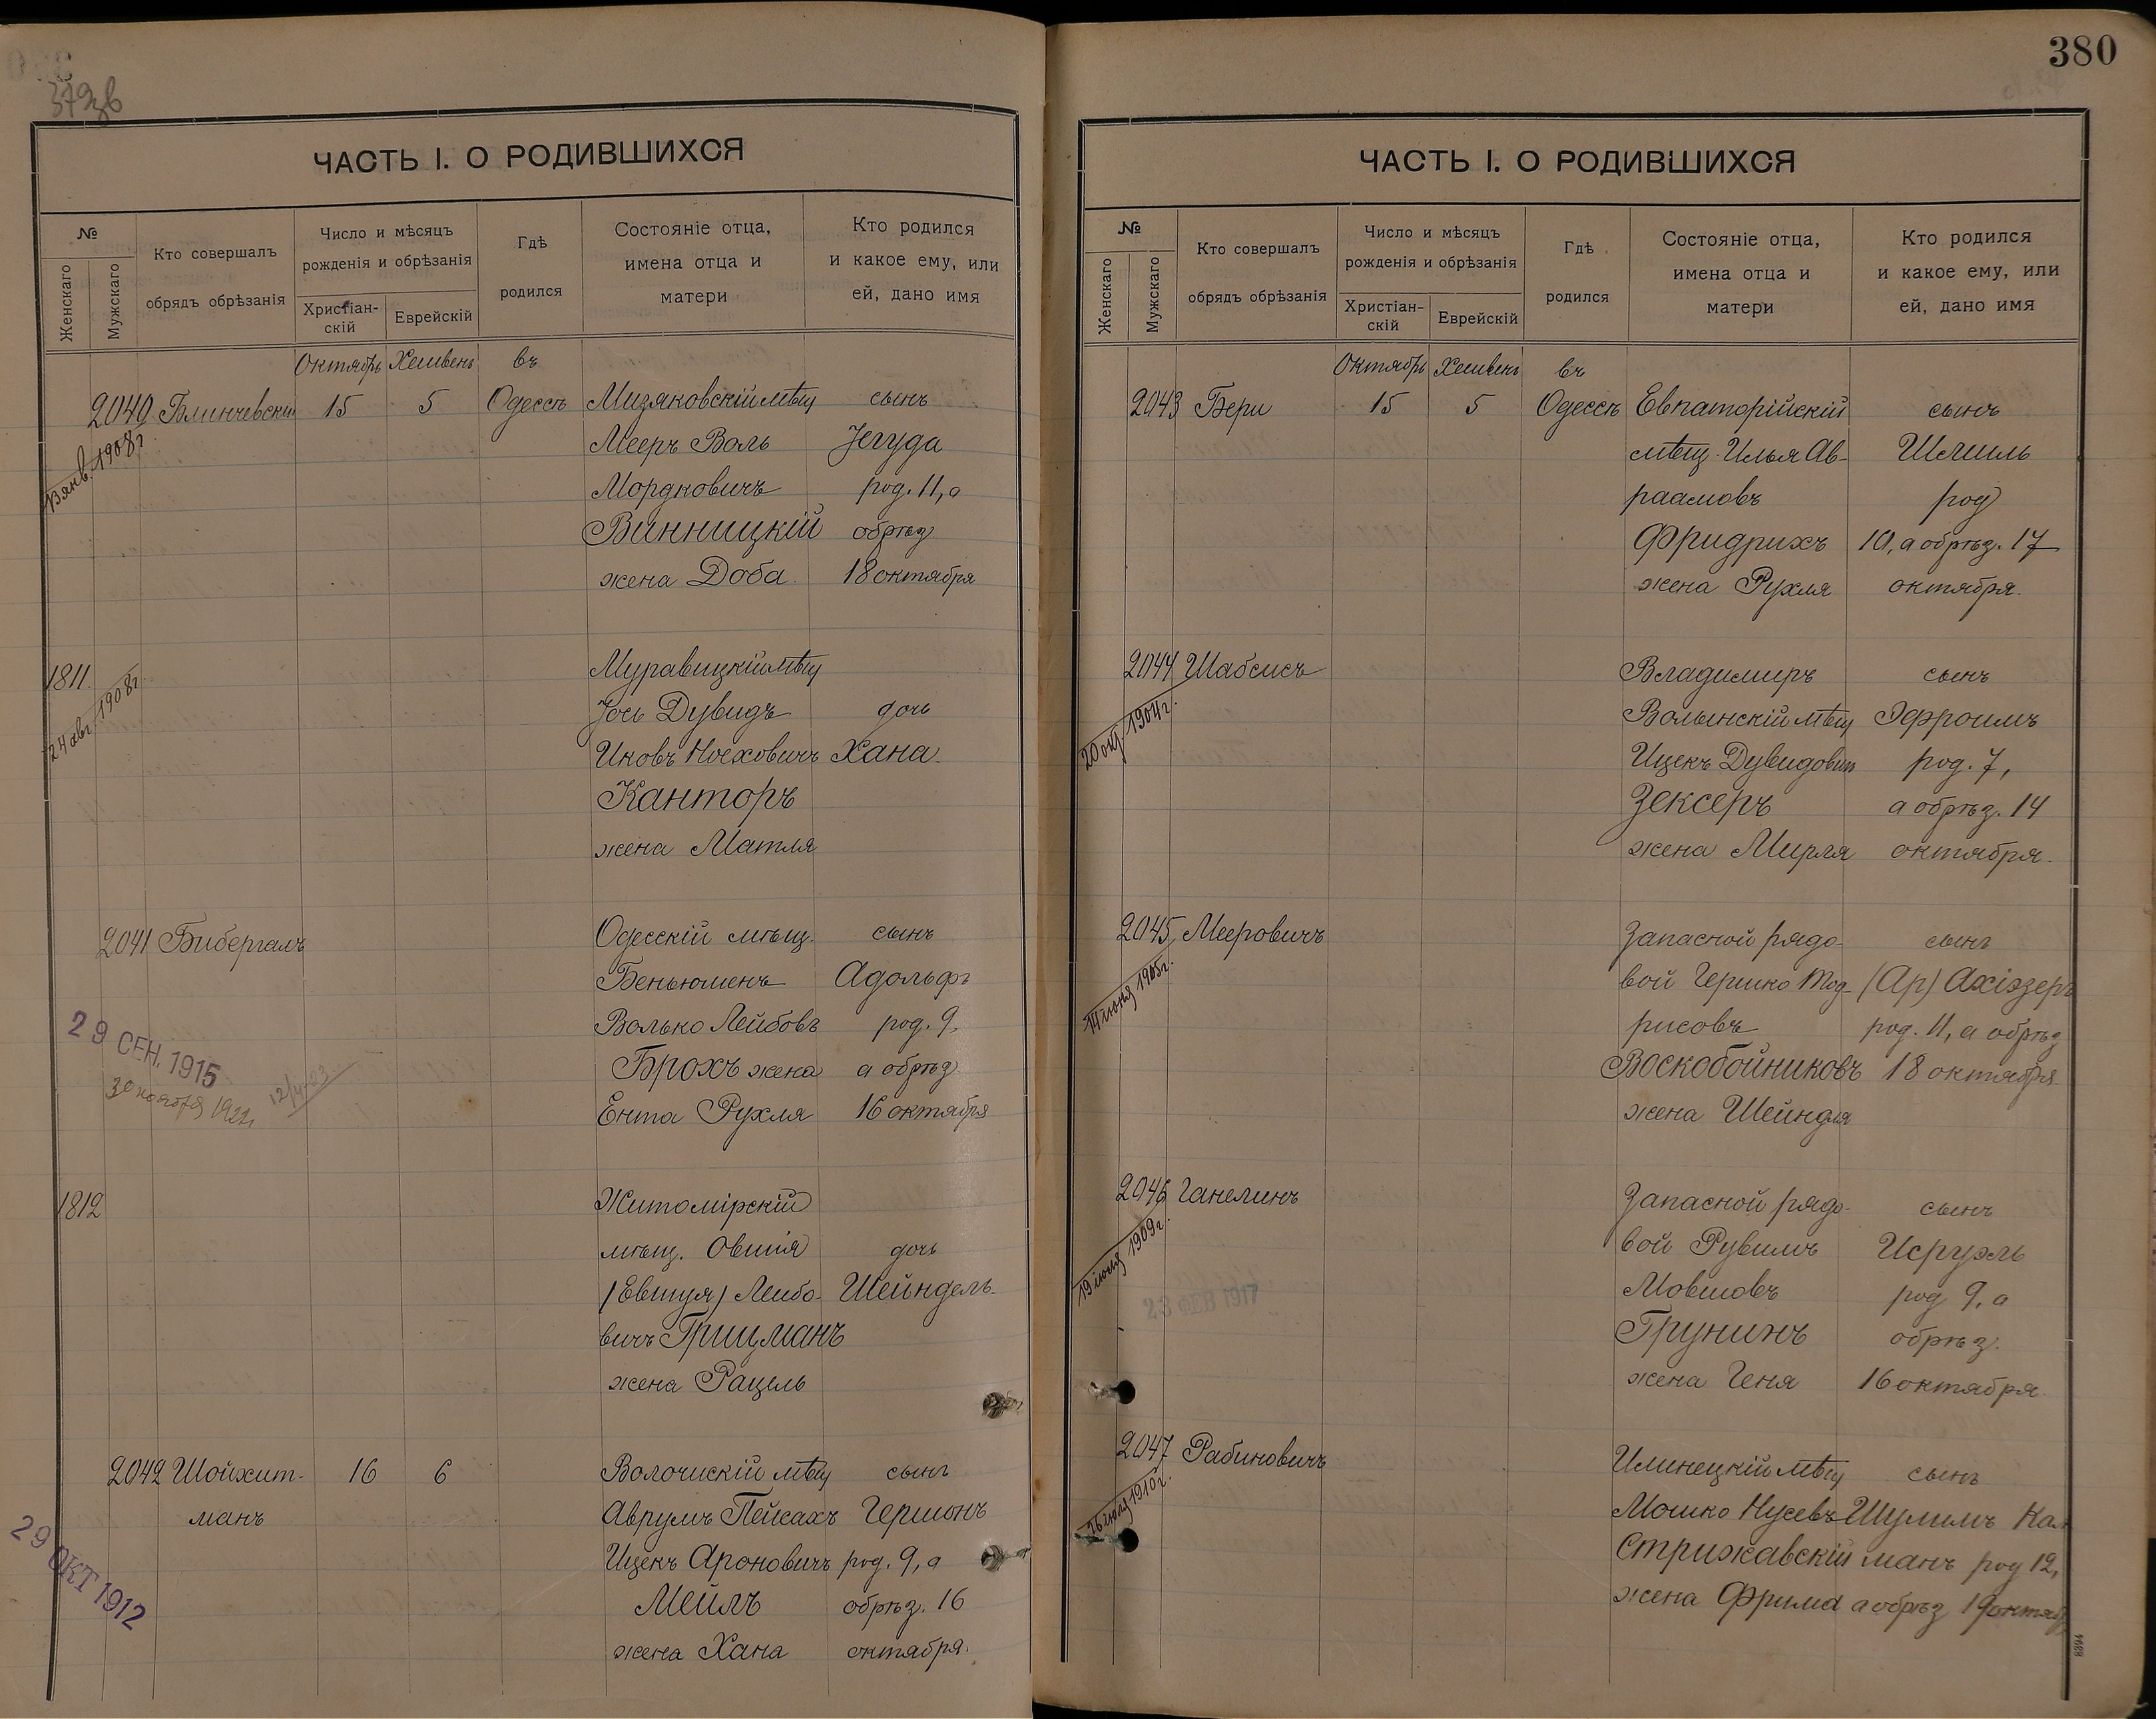 379зв
ЧАСТЬ I. О РОДИВШИХСЯ
№
Женскаго
Мужскаго
Кто совершалъ
обрядъ обрѣзанія
Число и мѣсяцъ
рожденія и обрѣзанія
Христіан-
скій
Еврейскій
Гдѣ
родился
Состояніе отца,
имена отца и
матери
Кто родился
и какое ему, или
ей, дано имя
Октябрь Хешвень въ
2040 Блинчевскій 15 5 Одессѣ Мизяковскій мѣщ сынъ
13 янв. 1908 г.
Мееръ Воль Іегуда
Мордковичъ род. 11, а
Винницкій обрѣз
жена Доба 18 октября
1811 Муравицкій мѣщ
24 авг 1908 г
Іось Дувидъ дочь
Ицковъ Ноеховичъ Хана
Канторъ
жена Матля
2041 Бибергалъ Одесскій мѣщ. сынъ
Беньюменъ Адольфъ
Волько Лейбовъ род. 9,
29 СЕН. 1915
Брохъ жена а обрѣз
30 ноября 1922
Ента Рухля 16 октября
1812 Житомірскій
мѣщ. Овшія дочь
(Евшуя) Лейбо- Шейндель
вичъ Грицманъ
жена Рацель
2042 Шойхит- 16 6 Волочискій мѣщ сынъ
манъ Аврумъ Пейсахъ Гершонъ
29 ОКТ 1912
Ицекъ Ароновичъ род. 9, а
Мейлъ обрѣз. 16
жена Хана октября.
380
ЧАСТЬ I. О РОДИВШИХСЯ
№
Женскаго
Мужскаго
Кто совершалъ
обрядъ обрѣзанія
Число и мѣсяцъ
рожденія и обрѣзанія
Христіан-
скій
Еврейскій
Гдѣ
родился
Состояніе отца,
имена отца и
матери
Кто родился
и какое ему, или
ей, дано имя
Октябрь Хешвень въ
2043 Бери 15 5 Одессѣ Евпаторійскій сынъ
мѣщ. Илья Ав- Шлиль
раамовъ род
Фридрихъ 10, а обрѣз. 17
жена Рухля октября.
2044 Шабсисъ Владимиръ сынъ
20 окт. 1904 г.
Волынскій мѣщ Эфроимъ
Ицекъ Дувидовичъ род. 7,
Зексеръ а обрѣз. 14
жена Мирля октября.
2045 Мееровичъ Запасной рядо- сынъ
14 июня 1905 г.
вой Гершко Тод- (Ар) Ахіэзеръ
рисовъ род. 11, а обрѣз
Воскобойниковъ 18 октября.
жена Шейндля
2046 Ганелинъ Запасной рядо- сынъ
19 июня 1909 г.
вой Рувимъ Исруэль
23 ФЕВ 1917
Мовшовъ род 9, а
Грунинъ обрѣз.
жена Геня 16 октября
2047 Рабиновичъ Илинецкій мѣщ сынъ
26 июля 1910 г.
Мошко Нусевъ Шулимъ Кал
Стрижавскій манъ род 12,
жена Фрима а обрѣз 19 октяб